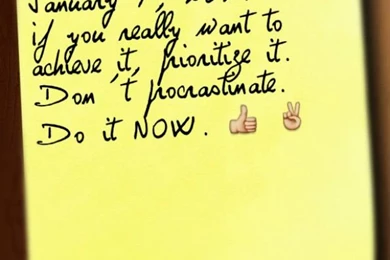 January
if you really want to
achieve it, prioritize it.
Don't procrastinate.
Do it NOW. 👍 ✌